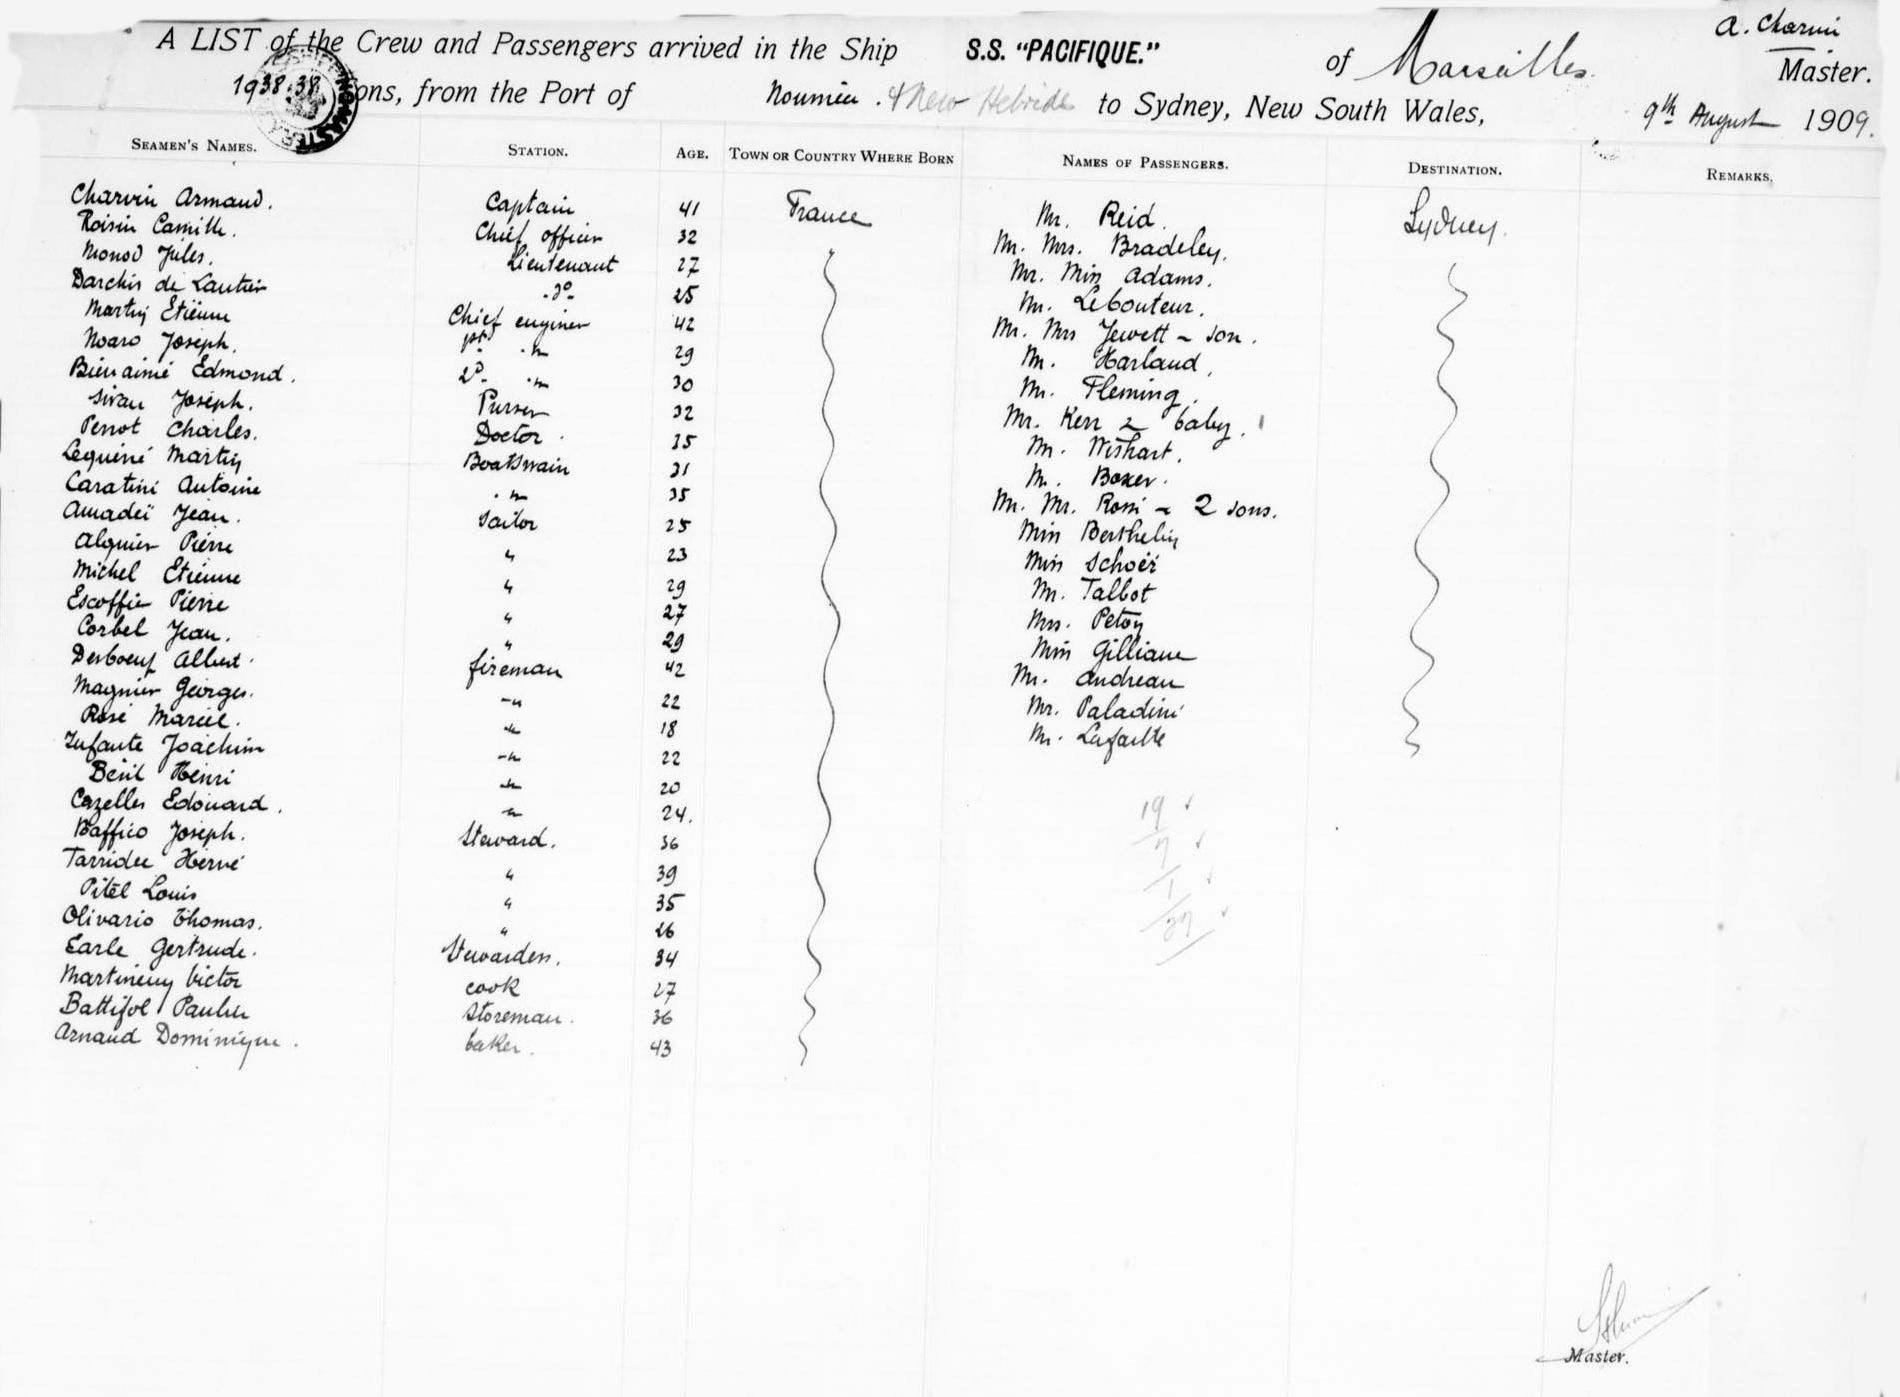 A LIST of the Crew and Passengers arrived in the Ship S.S. "PACIFIQUE." of Marseilles A. Charvin Master.
1938.38 ons, from the Port of Nouméa & New Hebrides to Sydney, New South Wales, 9th August 1909.
SEAMEN'S NAMES. STATION. AGE. TOWN OR COUNTRY WHERE BORN NAMES OF PASSENGERS. DESTINATION. REMARKS.
Charvin Armand. Captain 41 France Mr. Reid. Sydney.
Roisin Camille. Chief officer 32 Mr. Mrs. Bradeley.
Monod Jules. Lieutenant 27 Mr. Miss Adams.
Darchis de Lautier do 25 Mr. Lebouteur.
Martin Etienne Chief engineer 42 Mr. Mrs Jewett - son.
Noaro Joseph. 1st " 29 Mr. Harland,
Bienaimé Edmond. 2d. " 30 Mr. Fleming.
Sivan Joseph. Purser 32 Mr. Kerr & baby.
Perrot Charles. Doctor 25 Mr. Wishart.
Lequiné Martin Boatswain 31 Mr. Boxer.
Caratini Antoine " 35 Mr. Mr. Rossi - 2 sons.
Amadeï Jean. Sailor 25 Miss Berthelin
Alquier Pierre " 23 Miss Schoër
Michel Etienne " 29 Mr. Talbot
Escoffier Pierre " 27 Mrs. Petoy
Corbel Jean. " 29 Miss Gilliane
Desboeuf Albert. fireman 42 Mr. Andreau
Magnier Georges. " 22 Mr. Paladini
Rosé Marcel. " 18 Mr. Lafaille
Infante Joachim " 22
Henri " 20
Cazelles Edouard. " 24. 19
Baffico Joseph. Steward. 36 7
Tarridec Hervé " 39 1
Pitel Louis " 35 27
Olivario Thomas. " 26
Earle Gertrude. Stewardess. 34
Martineny Victor cook 27
Battifol Paulin Storeman. 36
Arnaud Dominique. baker. 43
Master.